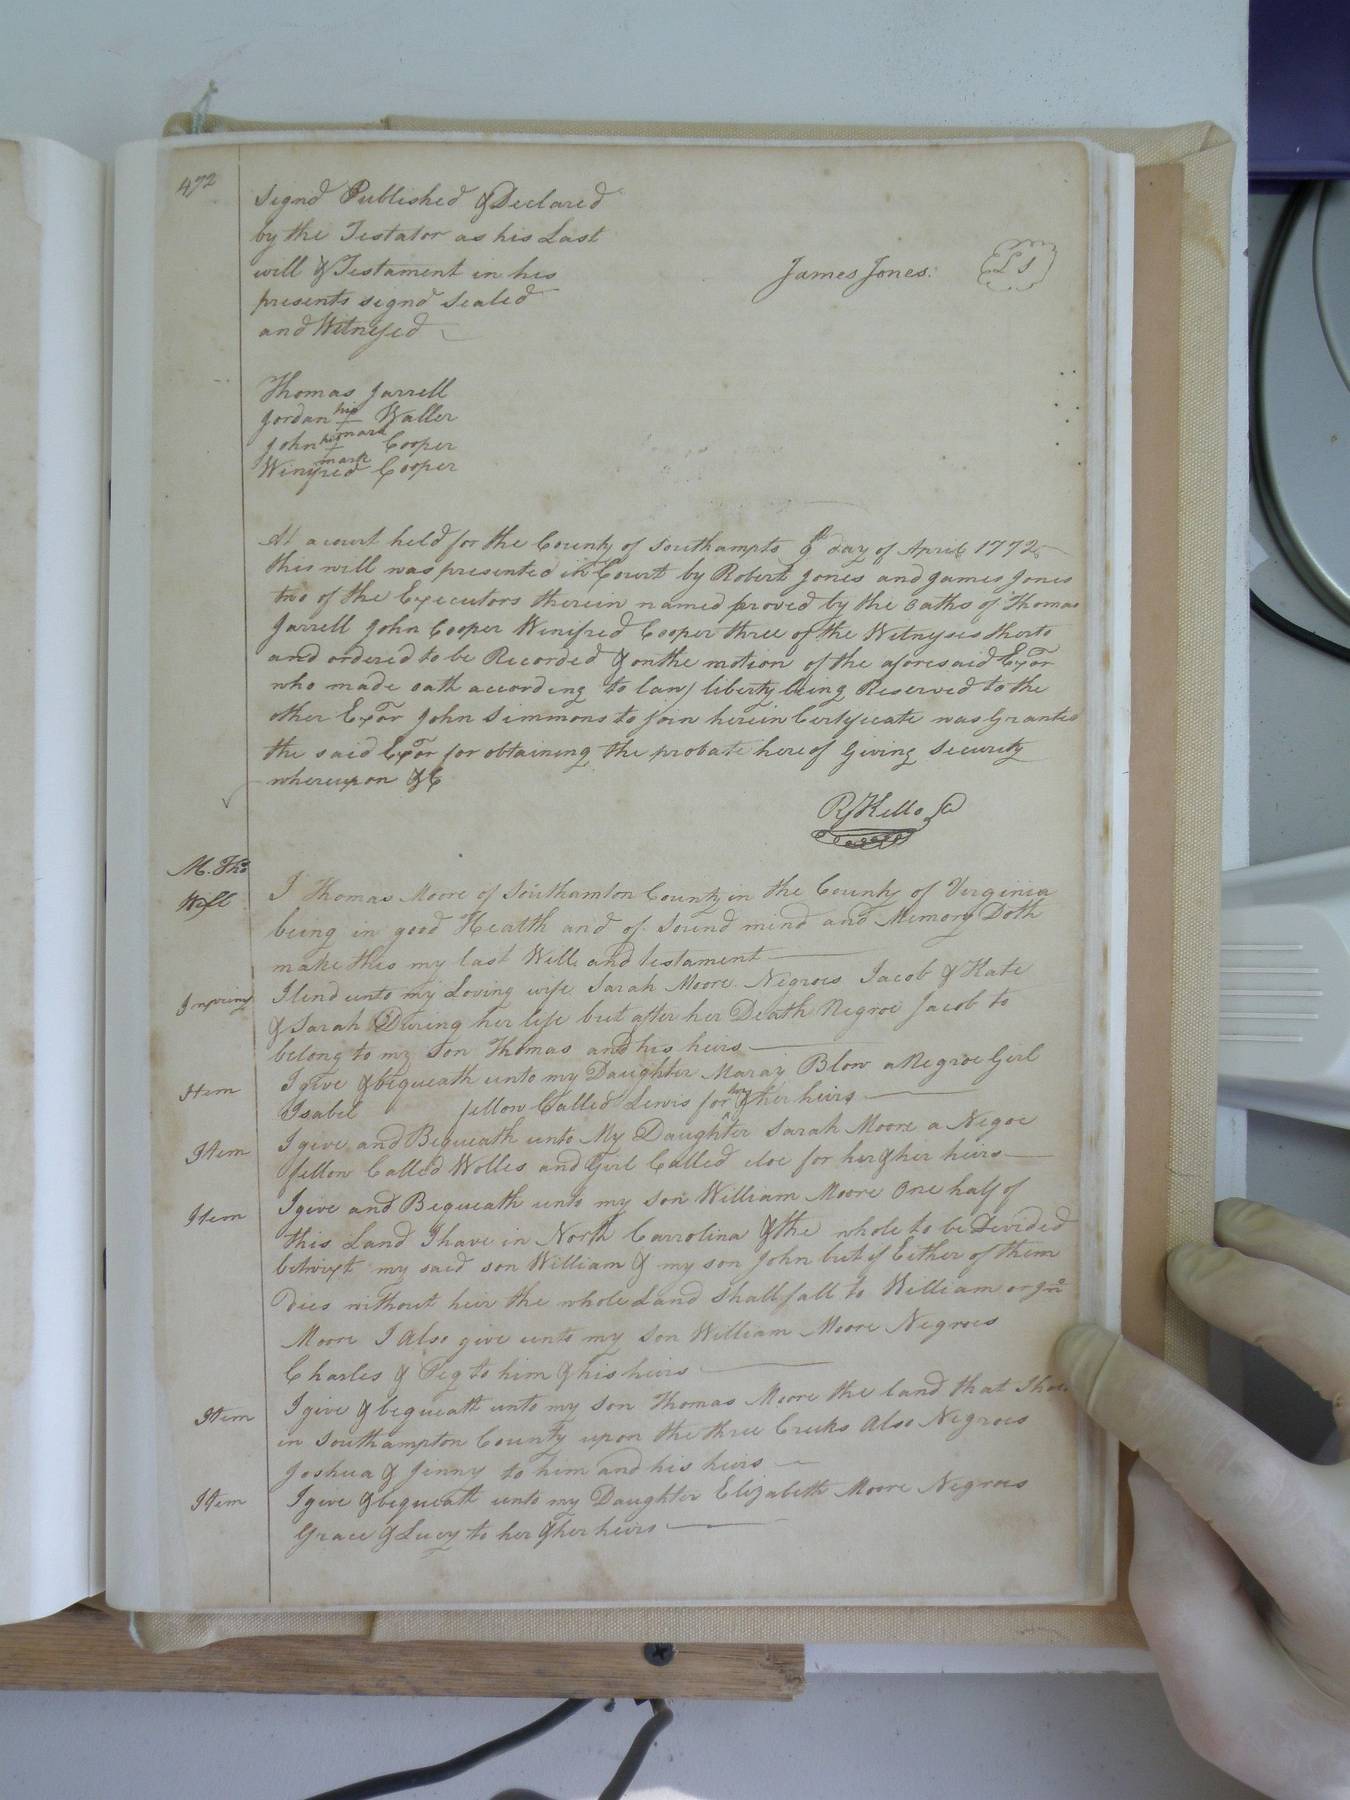 472
Signd Published & Declared
by the Testator as his Last
will & Testament in his
presents signd Sealed
and Witnessed
James Jones.
LS
Thomas Jarrell
Jordan his + mark Waller
John his + mark Cooper
Winifred Cooper
At a court held for the County of Southampto 9th day of April 1772
this will was presented in Court by Robert Jones and James Jones
two of the Executors therein named proved by the oaths of Thomas
Jarrell John Cooper Winifred Cooper three of the Witnesses therto
and ordered to be Recorded & on the motion of the aforesaid Exor
who made oath according to law liberty being Reserved to the
other Exor John Simmons to join herein Certificate was Granted
the said Exor for obtaining the probate hereof Giving Security
whereupon &C
Rd Kello
M. Tho
Will
I Thomas Moore of Southamton County in the County of Verginia
being in good Health and of Sound mind and Memory Doth
make this my last Will and testament
I lend unto my Loving wife Sarah Moore Negroes Jacob & Kate
& Sarah During her life but after her Death Negroe Jacob to
belong to my Son Thomas and his heirs
Item
I give & bequeath unto my Daughter Maray Blow a Negroe Girl
Isabel fellow Called Lewis for her & her heirs
Item
I give and Bequeath unto My Daughter Sarah Moore a Negoe
fellow Called Wolles and Girl Called cloe for her & her heirs
Item
I give and Bequeath unto my son William Moore One half of
this Land I have in North Carrolina & the whole to be Devided
betwixt my said son William & my son John but if Either of them
Dies without heir the whole Land Shall fall to William or Jno
Moore I Also give unto my Son William Moore Negroes
Charles & Peg to him & his heirs
Item
I give & bequeath unto my Son Thomas Moore the land that I
in Southampton County upon the three Creeks Also Negroes
Joshua & Jinny to him and his heirs
Item
I give & bequeath unto my Daughter Elizabeth Moore Negroes
Grace & Lucy to her & her heirs